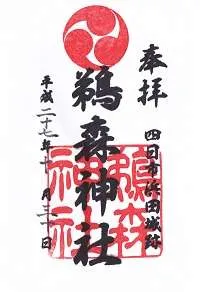 奉拝
四日市浜田城跡
鵜森神社
鵜森
神社
平成二十七年十月三十日